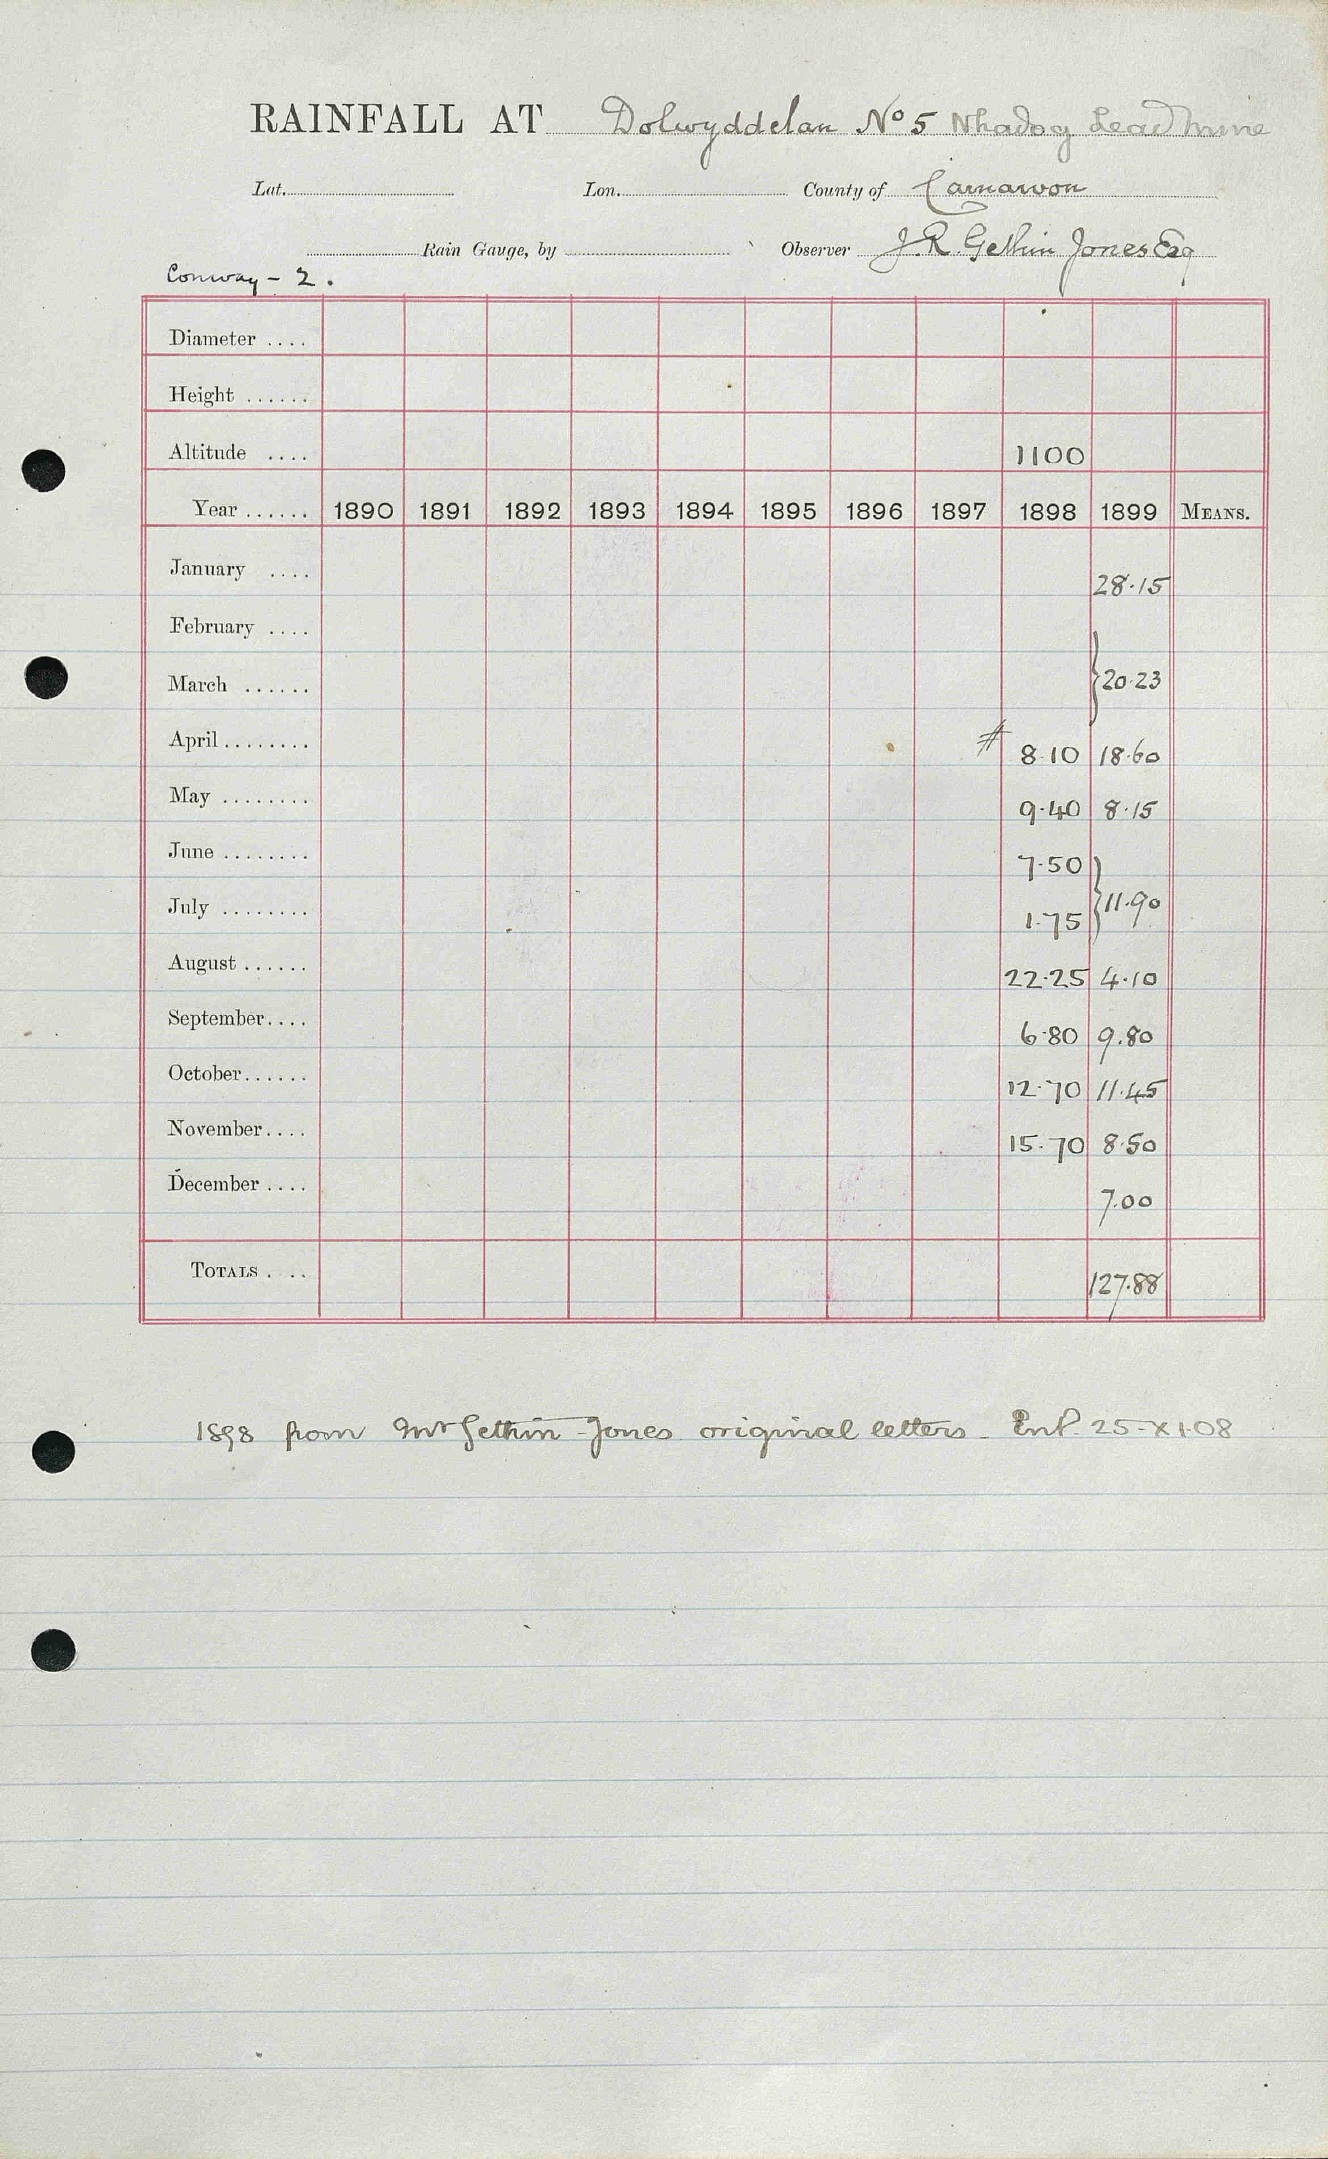 RAINFALL AT Dolwyddelan No 5 Nhadog Lead Mine
Lat. Lon. County of Carnarvon
Rain Gauge, by Observer J. R. Gethin Jones Esq
Conway - 2.
Diameter ....
Height ......
Altitude .... 1100
Year ...... 1890 1891 1892 1893 1894 1895 1896 1897 1898 1899 MEANS.
January .... 28.15
February ....
March ...... } 20.23
April ........ # 8.10 18.60
May ........ 9.40 8.15
June ........ 7.50
July ........ 1.75 } 11.90
August ...... 22.25 4.10
September.... 6.80 9.80
October...... 12.70 11.45
November.... 15.70 8.50
December .... 7.00
TOTALS .... 127.88
1898 from Mr Gethin-Jones original letters - Ent. 25-XI-08